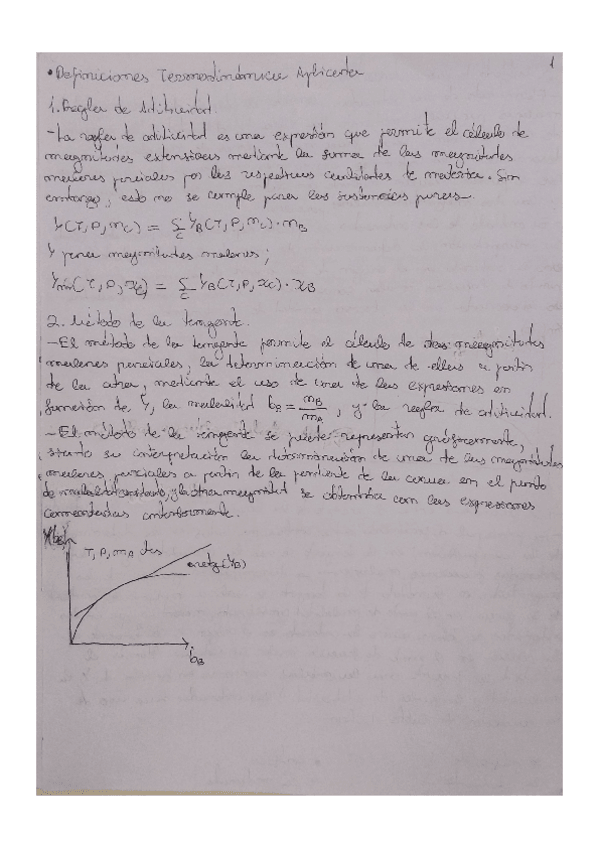 1
• Definiciones Termodinámica Aplicada
1. Regla de Aditividad.
- La regla de aditividad es una expresión que permite el cálculo de
magnitudes extensivas mediante la suma de las magnitudes
molares parciales por las respectivas cantidades de materia. Sin
embargo, esto no se cumple para las sustancias puras.
Y(T, P, nc) = Σc YB(T, P, nc) · nB
Y para magnitudes molares;
Ym(T, P, xc) = Σc YB(T, P, xc) · xB
2. Método de la tangente.
- El método de la tangente permite el cálculo de dos magnitudes
molares parciales, la determinación de una de ellas a partir
de la otra, mediante el uso de una de las expresiones en
función de Y, la molalidad bB = nB/mA, y la regla de aditividad.
- El método de la tangente se puede representar gráficamente,
siendo su interpretación la determinación de una de las magnitudes
molares parciales a partir de la pendiente de la curva en el punto
de molalidad considerado, y la otra magnitud se obtendría con las expresiones
comentadas anteriormente.
T, P, mA ctes
(YB)
bB